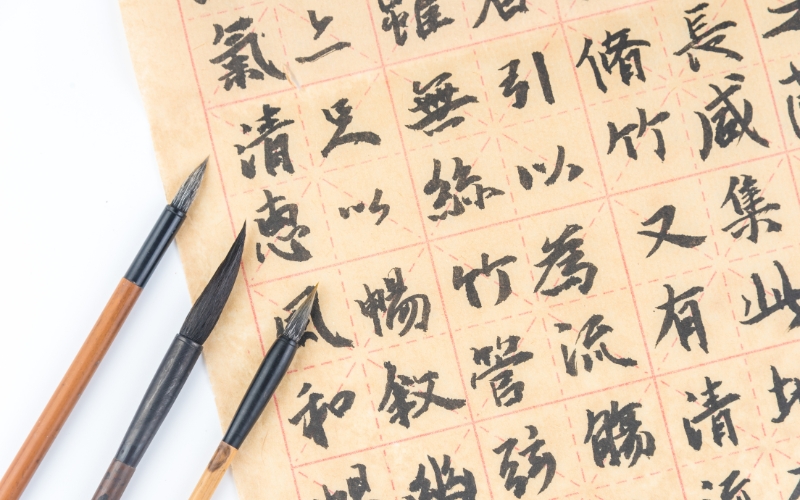 長咸集此地
脩竹又有清流
引以為流觴
雖無絲竹管弦
足以暢叙幽
氣清惠風和暢